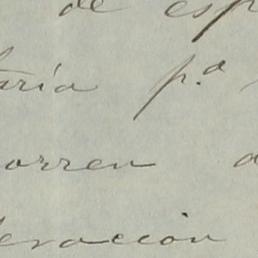 de esp
taria p.a
orren a
eracion